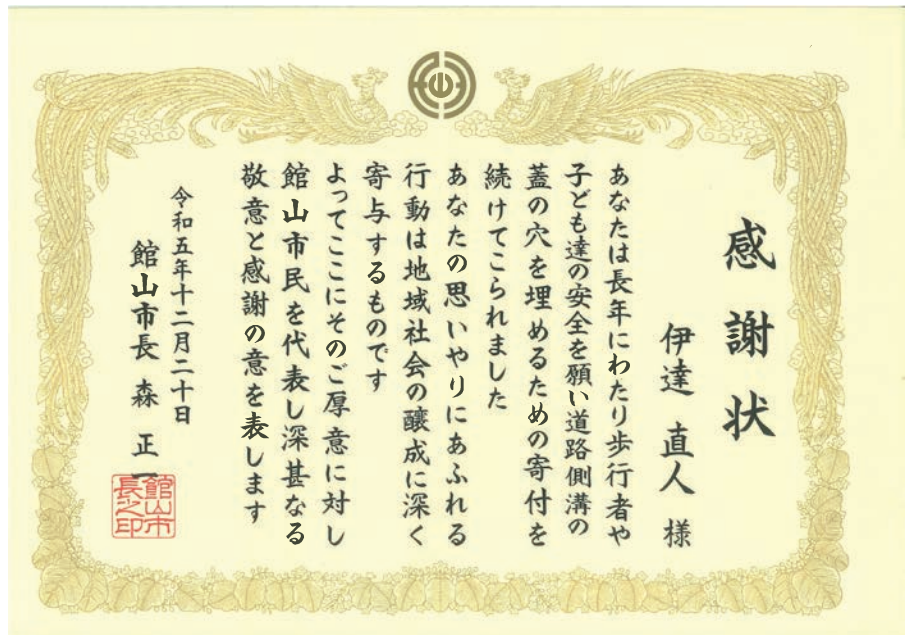 感謝状
伊達 直人 様
あなたは長年にわたり歩行者や
子ども達の安全を願い道路側溝の
蓋の穴を埋めるための寄付を
続けてこられました
あなたの思いやりにあふれる
行動は地域社会の醸成に深く
寄与するものです
よってここにそのご厚意に対し
館山市民を代表し深甚なる
敬意と感謝の意を表します
令和五年十二月二十日
館山市長 森 正一
館山市
長之印